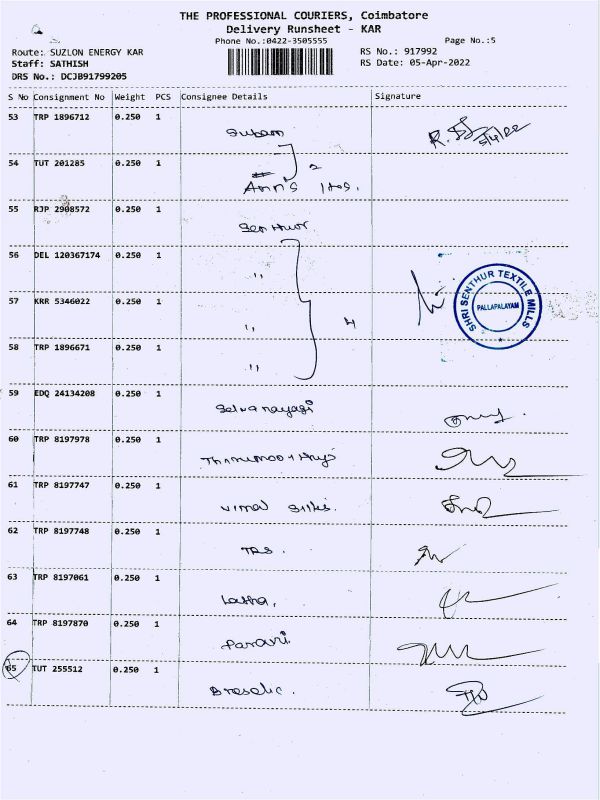 THE PROFESSIONAL COURIERS, Coimbatore
Delivery Runsheet - KAR
Phone No.:0422-3505555
Page No.:5
Route: SUZLON ENERGY KAR
RS No.: 917992
Staff: SATHISH
RS Date: 05-Apr-2022
DRS No.: DCJB91799205
S No Consignment No Weight PCS Consignee Details Signature
53 TRP 1896712 0.250 1 Subam
R. 5/4/22
54 TUT 201285 0.250 1 2
Ann's
55 RJP 2908572 0.250 1 Senthur
56 DEL 120367174 0.250 1 ,,
57 KRR 5346022 0.250 1 ,, 4
SHRI SENTHUR TEXTILE MILLS
PALLAPALAYAM
58 TRP 1896671 0.250 1 ,,
59 EDQ 24134208 0.250 1 Selvanayagi
60 TRP 8197978 0.250 1
61 TRP 8197747 0.250 1 Vimal Silks
62 TRP 8197748 0.250 1 TRS.
63 TRP 8197061 0.250 1 Latha,
64 TRP 8197870 0.250 1
65 TUT 255512 0.250 1